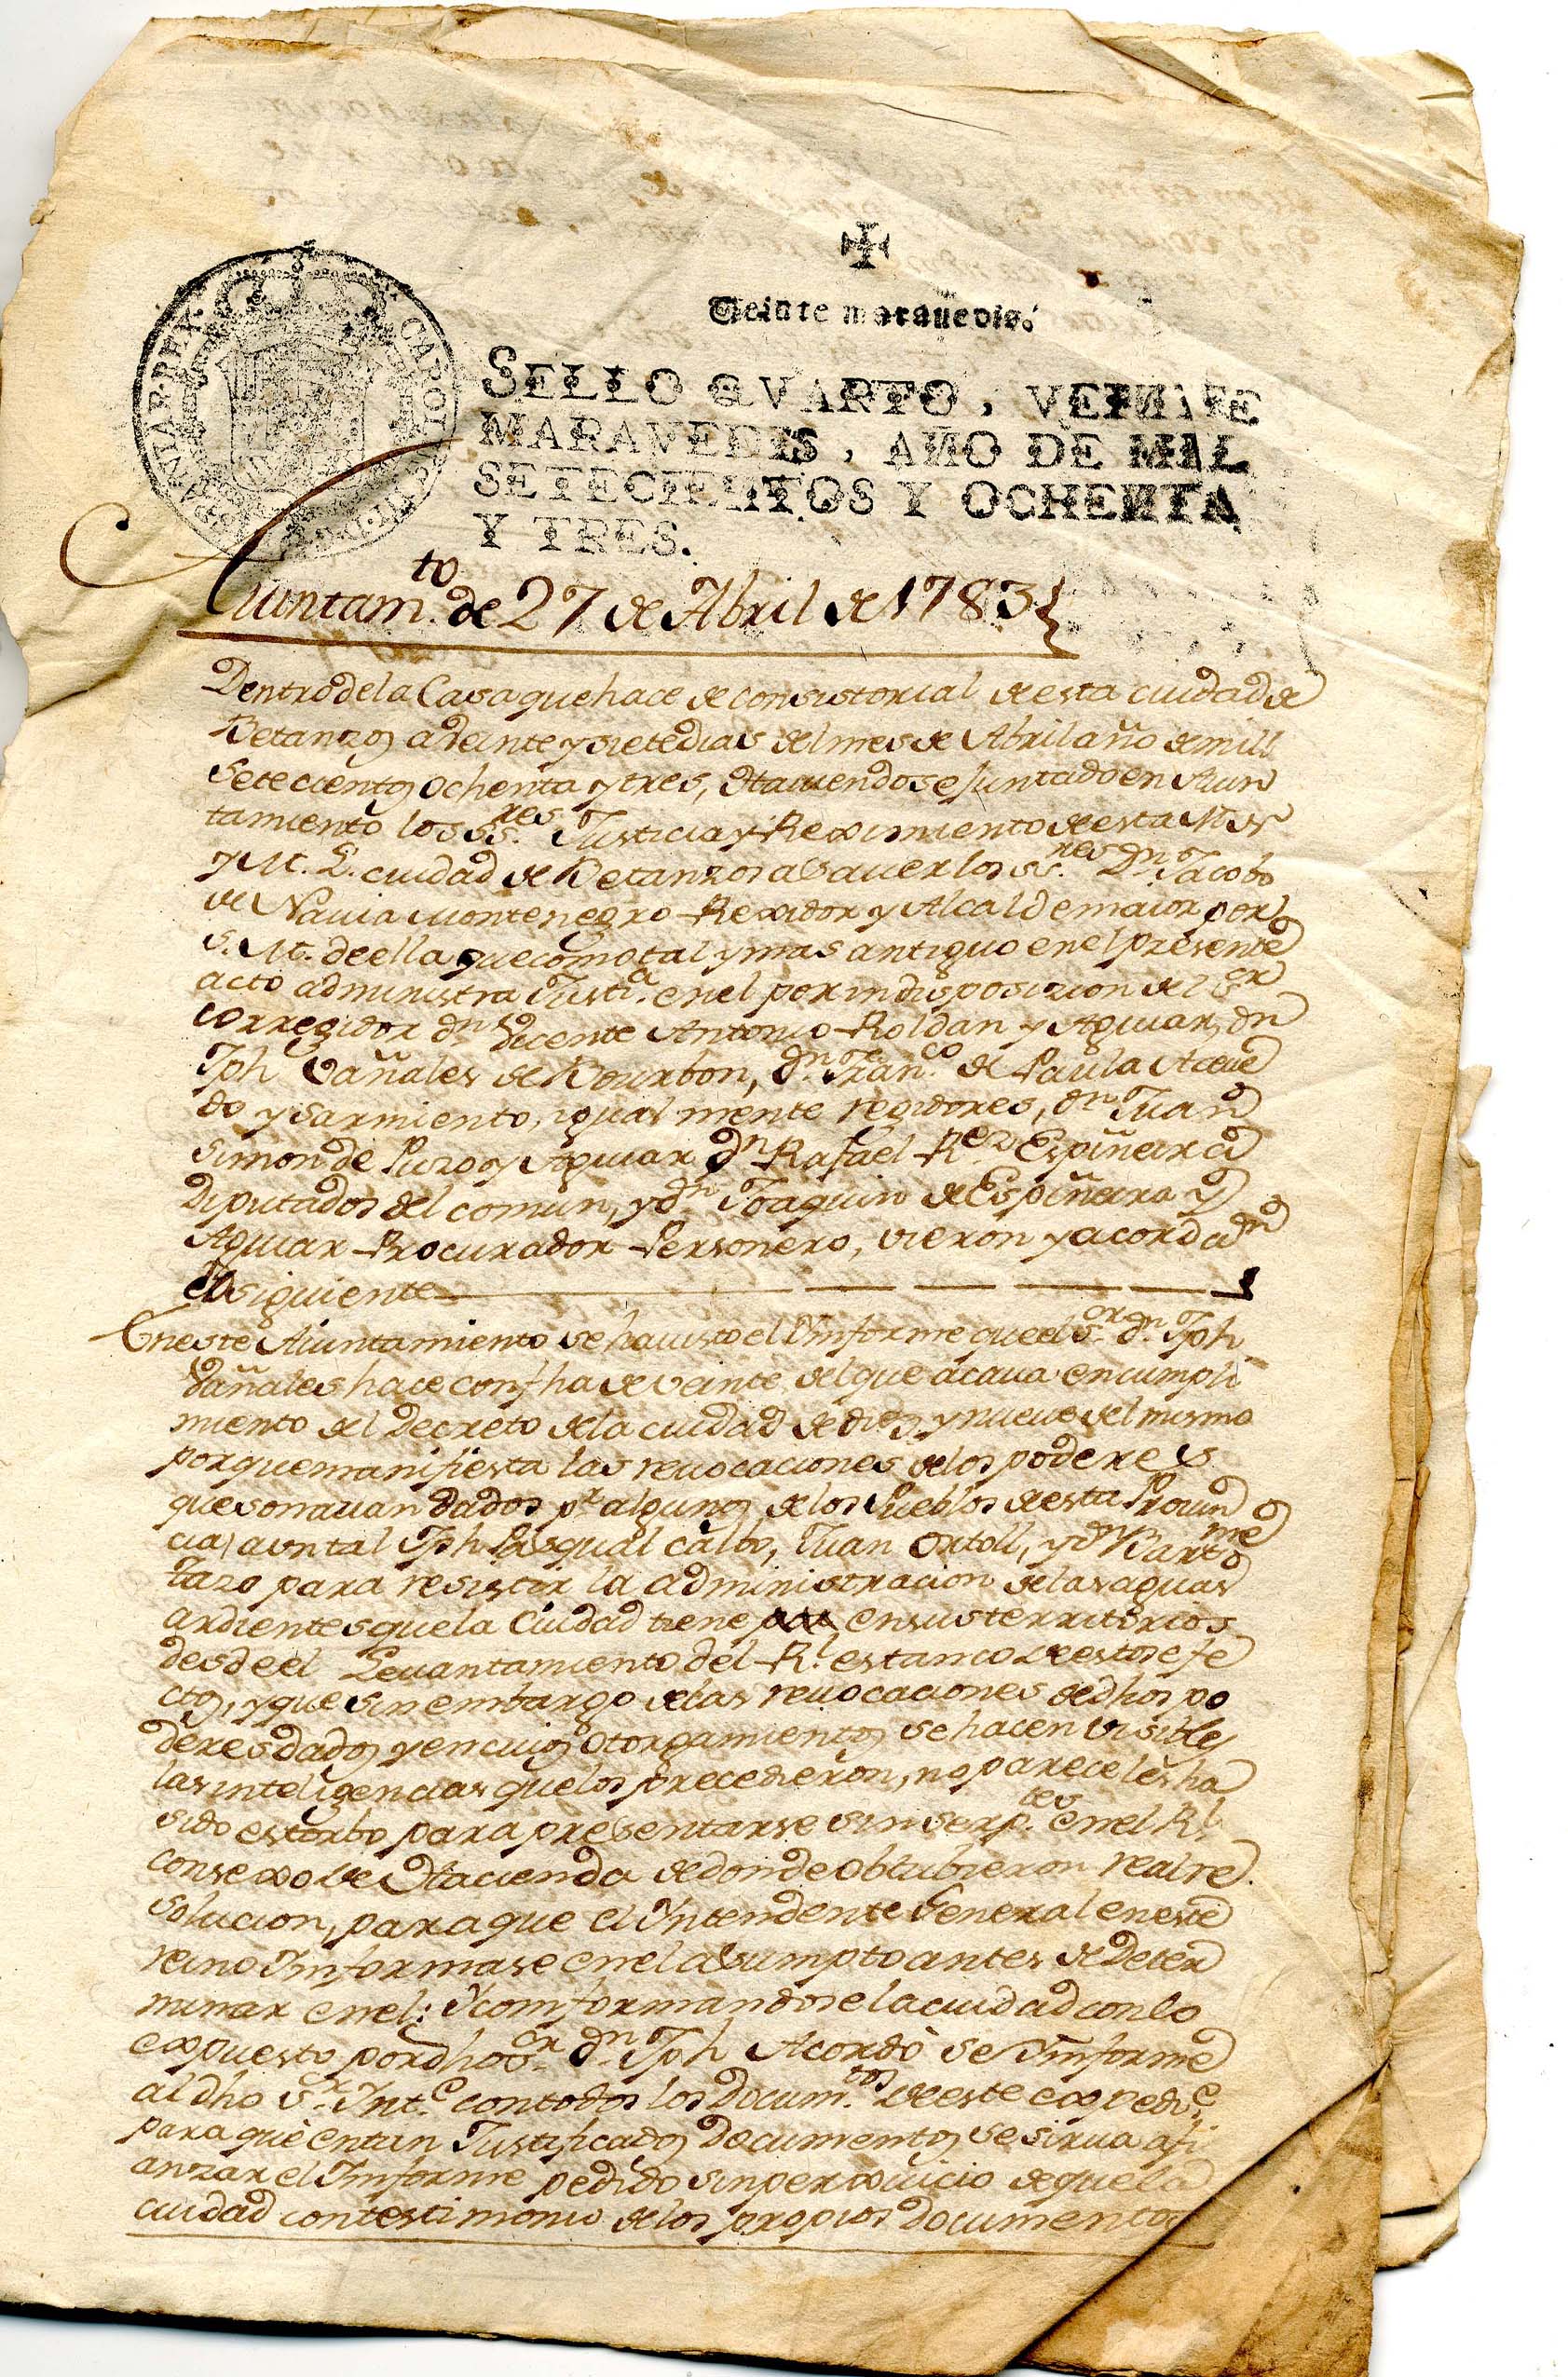 Veinte maravedis.
SELLO QVARTO, VEINTE
MARAVEDIS, AÑO DE MIL
SETECIENTOS Y OCHENTA
Y TRES.
Aiuntam.to de 27 de Abril de 1783
Dentro de la Casa que hace de consistorial de esta ciudad de
Betanzos a Veinte y siete dias del mes de Abril año de mill
Setecientos Ochenta y tres, Haviendose Juntado en Aiun
tamiento los SS.res Justicia y Reximiento de esta M. N.
y M. L. ciudad de Betanzos a Saver los SS.res Dn Jacobo
de Navia Montenegro Rexidor y Alcalde maior por
S. M. de ella que como tal y mas antiguo en el presente
acto administra Justi.a en el por indisposicion del S.or
Corregidor dn. Vicente Antonio Roldan y Aguiar, dn
Jph Vañales de Bourbon, dn. Fran.co de Paula Aceve
do y Sarmiento, igualmente regidores, dn Juan
Simon de Puzo y Aguiar dn Rafael R.ez Espiñeira
Diputados del comun, y dn. Joaquin de Espiñeira y
Aguiar Procurador Personero, vieron y acordaron
lo siguiente
En este Aiuntamiento se ha visto el Ynforme que el S.or dn. Jph
Vañales hace con fha de veinte del que acava en cumpli
miento del Decreto de la ciudad de diez y nueve del mismo
por que manifiesta las revocaciones de los poderes
que sonavan dados pr. algunos de los Pueblos de esta Provin
cia, a un tal Jph Pasqual Calbo, Juan Ortoll, y dn Barto.me
Tazo para resistir la administracion de las aguas
ardientes que la Ciudad tiene en sus territorios
desde el Levantamiento del R.l estanco de estos efe
ctos, y que sin embargo de las revocaciones de dhos po
deres dados y en cuios Otorgamientos se hacen visibles
las inteligencias que los precedieron, no parece les ha
sido estorbo para presentarse sin ser p.tes en el R.l
Consexo de Hacienda de donde Obtubieron real re
solucion, para que el Yntendente General en este
reino Ynformase en el asumpto antes de Deter
minar en el: Y comformandose la ciudad con lo
expuesto por dho S.or dn Jph Acordó se Ynforme
al dho S.r Ynt.e con todos los Docum.tos de este expedi.e
para que en tan Justificados Documentos se sirva afi
anzar el Ynforme pedido sin perxuicio de que la
ciudad con testimonio de los propios documentos